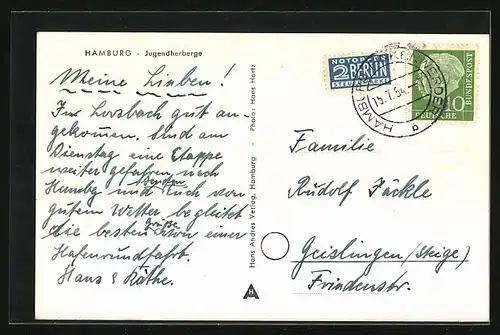 HAMBURG - Jugendherberge
Meine Lieben!
In Lorsbach gut an-
gekommen. Sind am
Dienstag eine Etappe
weiter gefahren nach
Hambg und senden Euch von
gutem Wetter begleitet
die besten Grüße von einer
Hafenrundfahrt.
Hans & Käthe.
Hans Andres Verlag, Hamburg - Photo: Hans Hartz
NOTOPFER
2 BERLIN
STEUERMARKE
HAMBURG
19.7.54
a
10
DEUTSCHE
BUNDESPOST
Familie
Rudolf Jäckle
Geislingen/(Steige)
Friedenstr.